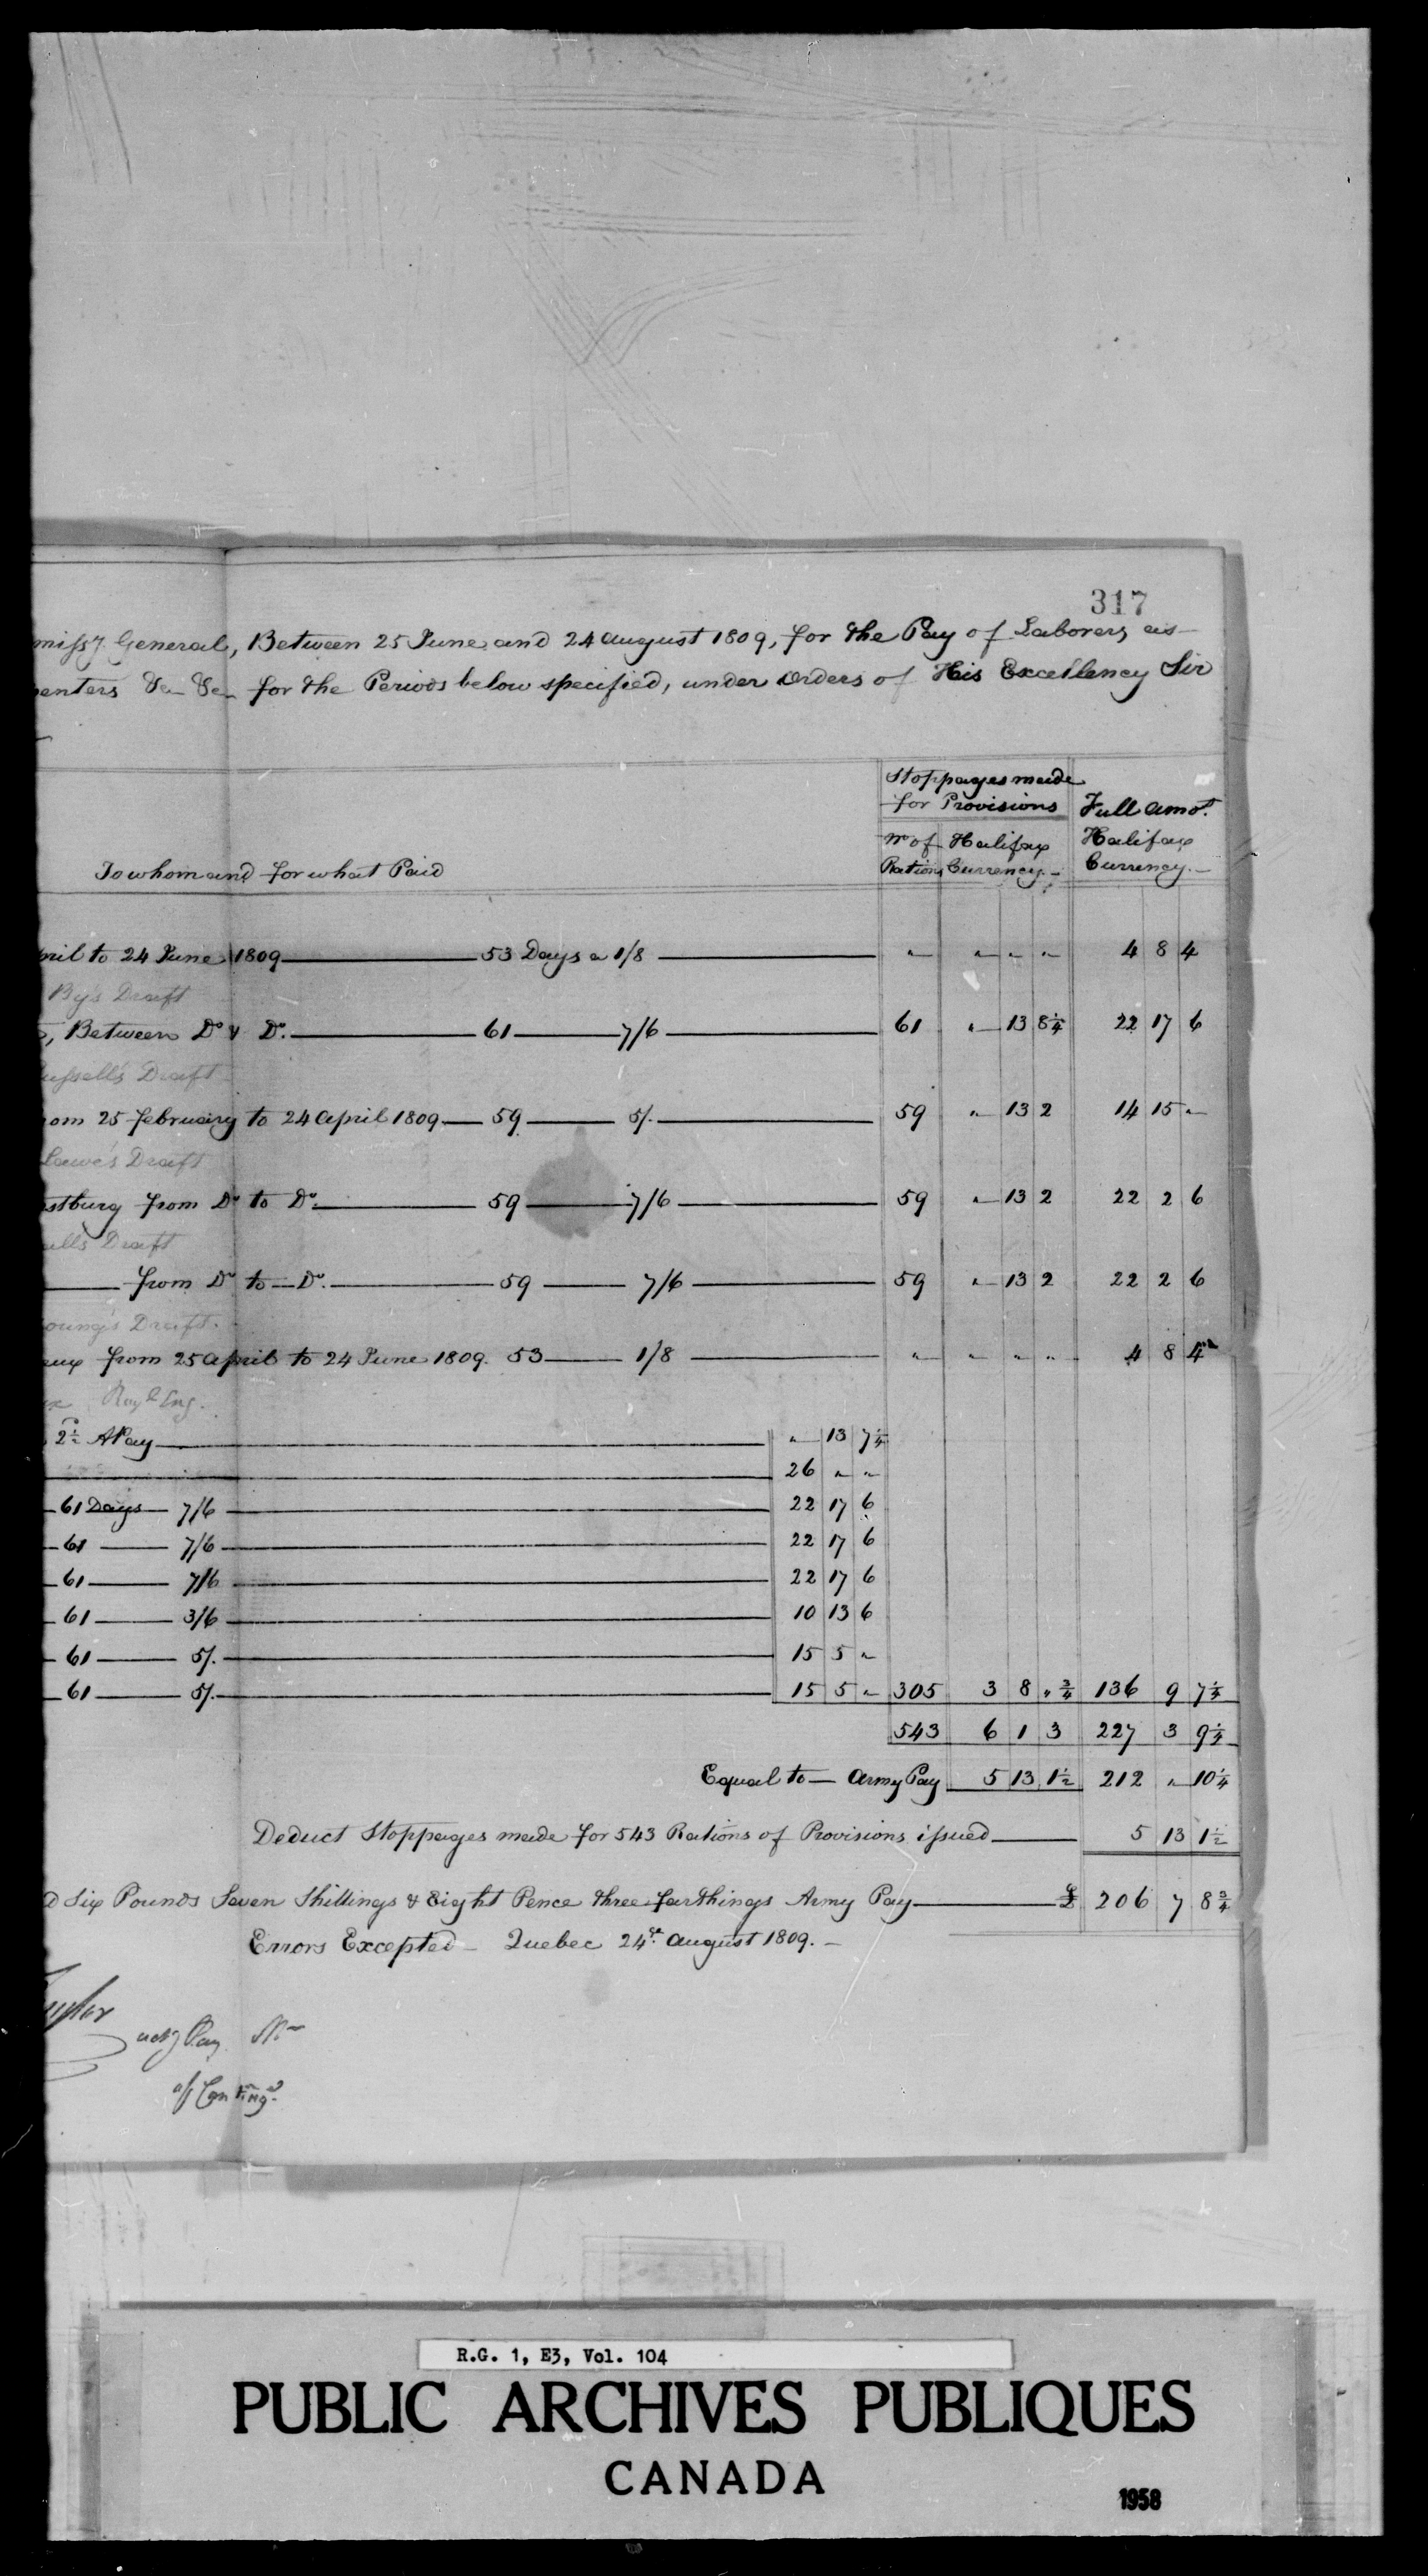 317
missy. General, Between 25 June and 24 August 1809, for the Pay of Laborers as
penters &c &c for the Periods below specified, under Orders of His Excellency Sir
Stoppages made
for Provisions Full Amot.
No of Halifax Halifax
Rations Currency.— Currency.—
To whom and for what Paid
pril to 24 June 1809 — 53 Days a 1/8 — " " " " 4 8 4
By's Draft
Between Do & Do. — 61 — 7/6 — 61 " 13 8¼ 22 17 6
ussell's Draft
om 25 February to 24 April 1809 — 59 — 5/. — 59 " 13 2 14 15 "
Lawe's Draft
stburg from Do to Do. — 59 — 7/6 — 59 " 13 2 22 2 6
ells Draft
— from Do to — Do. — 59 — 7/6 — 59 " 13 2 22 2 6
oung's Draft.
eux from 25 April to 24 June 1809. 53 — 1/8 — " " " " 4 8 4
Royl Eng.
2½ APay — " 13 7¼
— 26 " "
— 61 Days — 7/6 — 22 17 6
— 61 — 7/6 — 22 17 6
— 61 — 7/6 — 22 17 6
— 61 — 3/6 — 10 13 6
— 61 — 5/. — 15 5 "
— 61 — 5/. — 15 5 " 305 3 8 " ¾ 136 9 7¼
543 6 1 3 227 3 9¼
Equal to — Army Pay 5 13 1½ 212 " 10¼
Deduct Stoppages made for 543 Rations of Provisions issued — 5 13 1½
d Six Pounds Seven Shillings & Eight Pence three farthings Army Pay — £ 206 7 8¾
Errors Excepted — Quebec 24th. August 1809. —
aylor
actg Pay Mr
of Conting.
R.G. 1, E3, Vol. 104
PUBLIC ARCHIVES PUBLIQUES
CANADA
1958